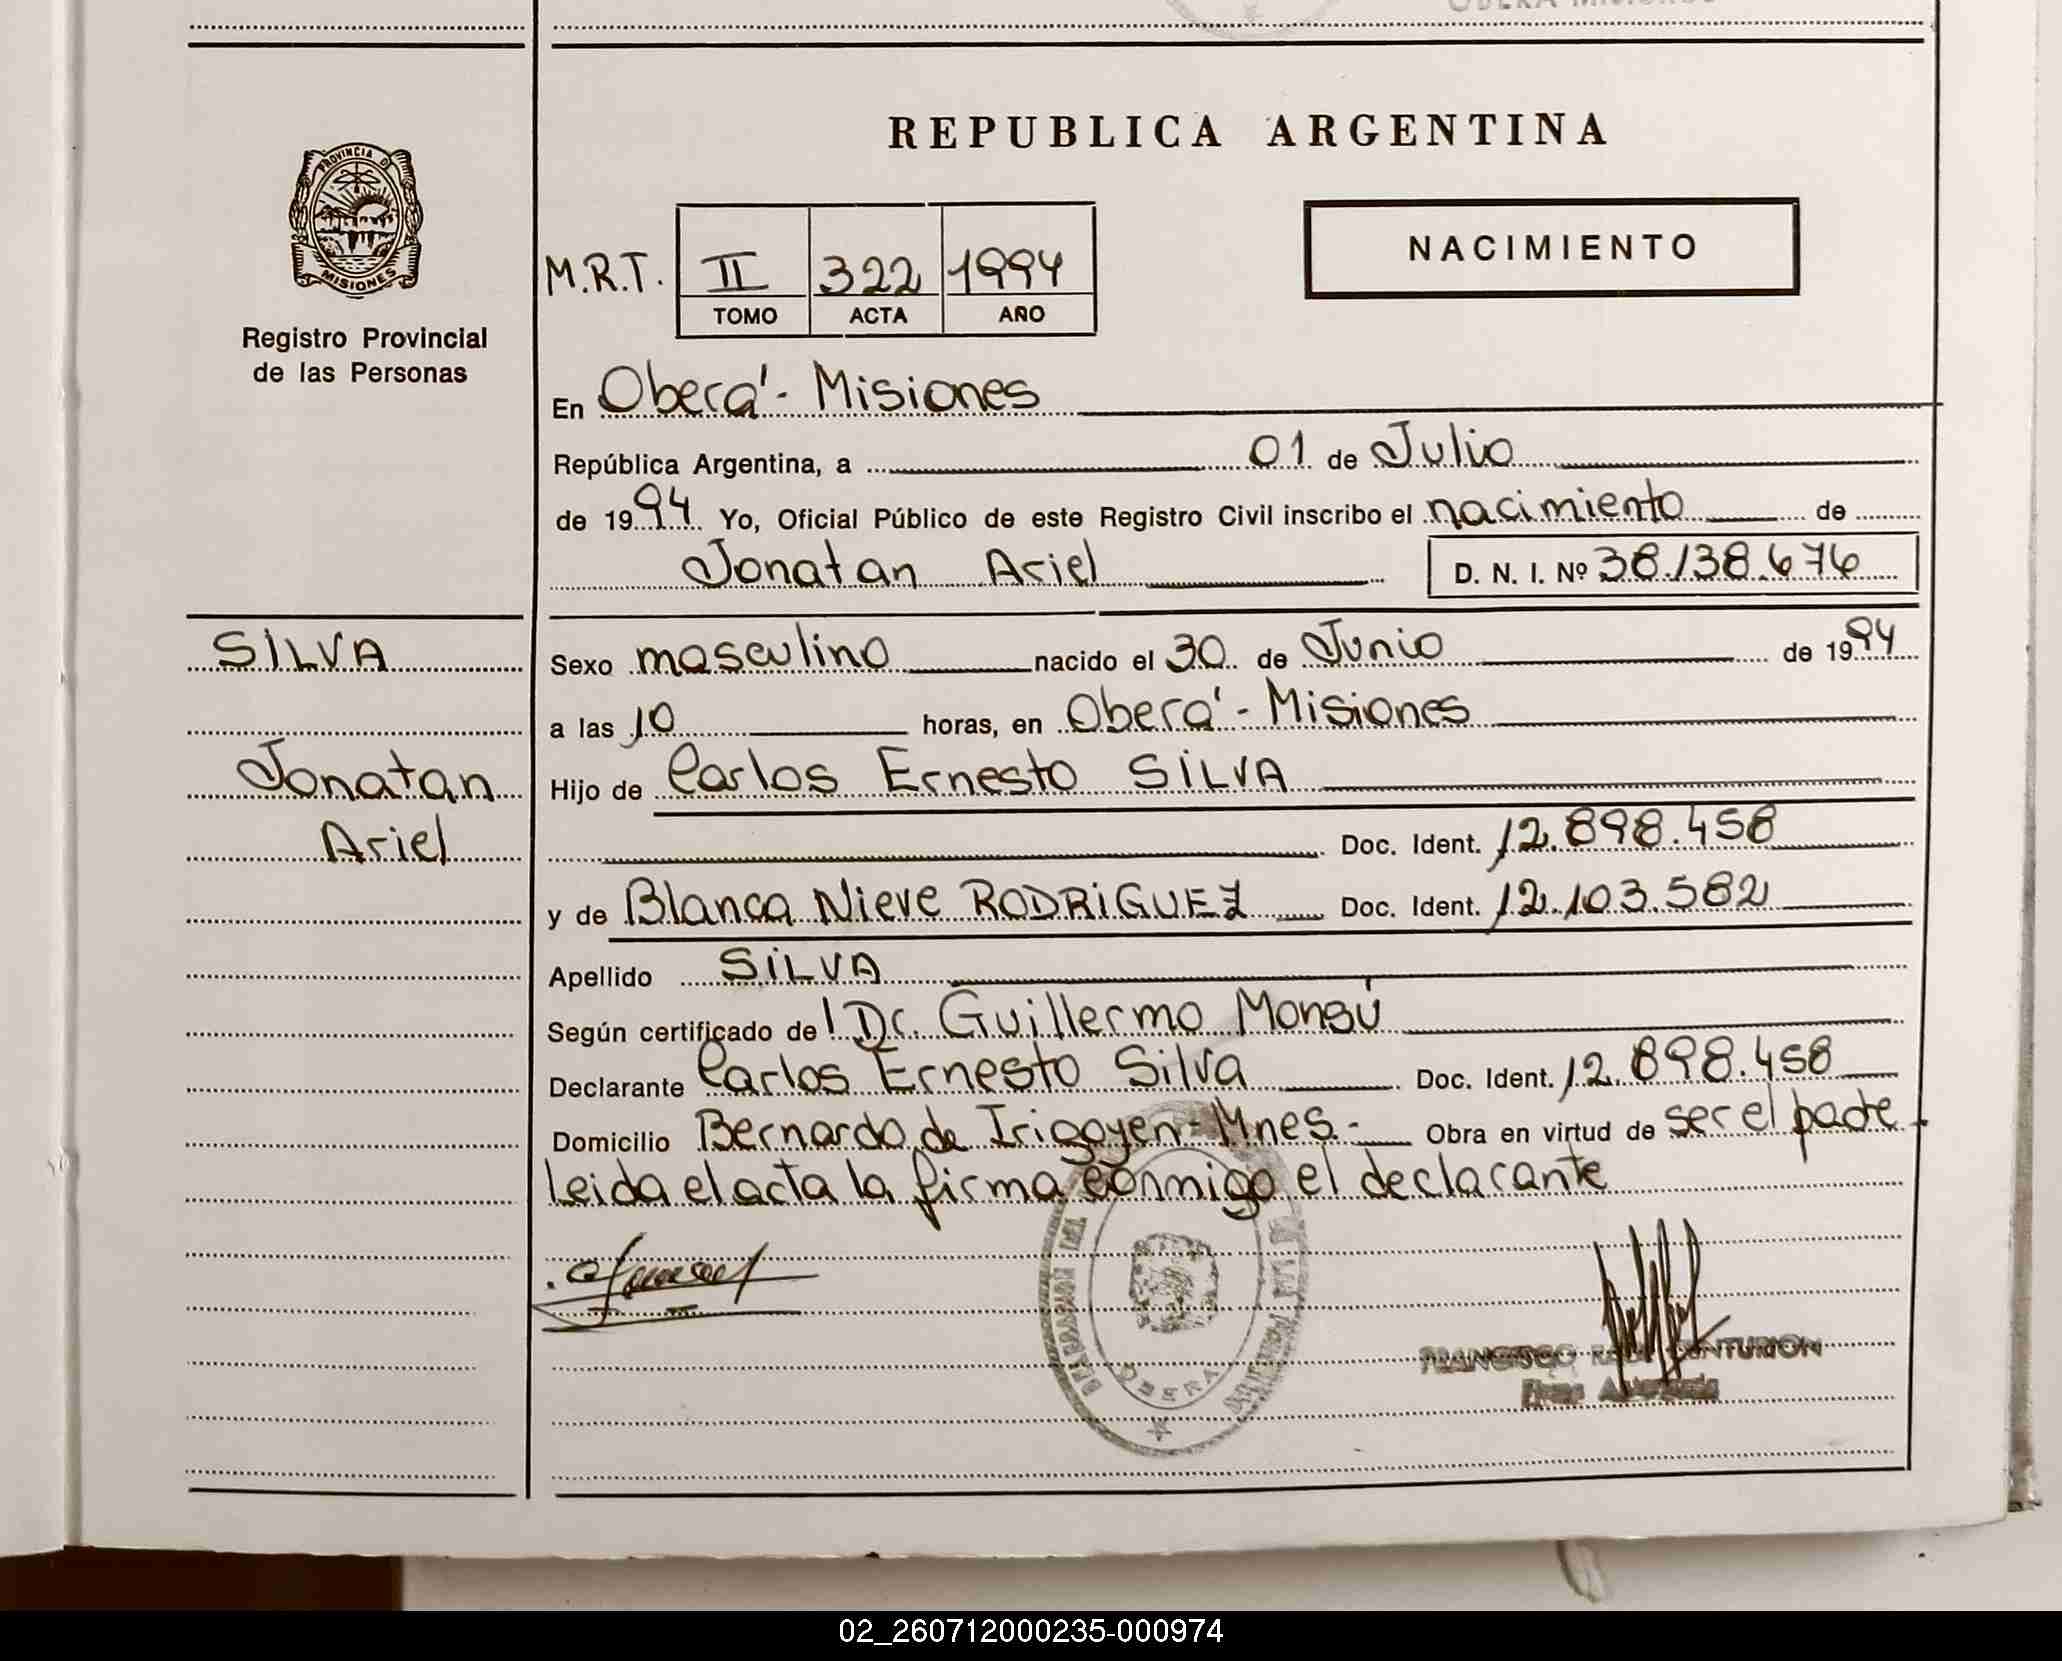 REPUBLICA ARGENTINA
PROVINCIA D
MISIONES
Registro Provincial
de las Personas
NACIMIENTO
M.R.T. II 322 1994
TOMO ACTA AÑO
En Oberá - Misiones
República Argentina, a 01 de Julio
de 1994 Yo, Oficial Público de este Registro Civil inscribo el nacimiento de
Jonatan Ariel D. N. I. Nº 38.138.676
SILVA
Jonatan
Ariel
Sexo masculino nacido el 30 de Junio de 1994
a las 10 horas, en Oberá - Misiones
Hijo de Carlos Ernesto SILVA
Doc. Ident. 12.898.458
y de Blanca Nieve RODRIGUEZ Doc. Ident. 12.103.582
Apellido SILVA
Según certificado de Dr. Guillermo
Declarante Carlos Ernesto Silva Doc. Ident. 12.898.458
Domicilio Bernardo de Irigoyen - Mnes.- Obra en virtud de ser el padre
leida el acta la firma conmigo el declarante
OBERA
FRANCISCO CENTURION
02_260712000235-000974